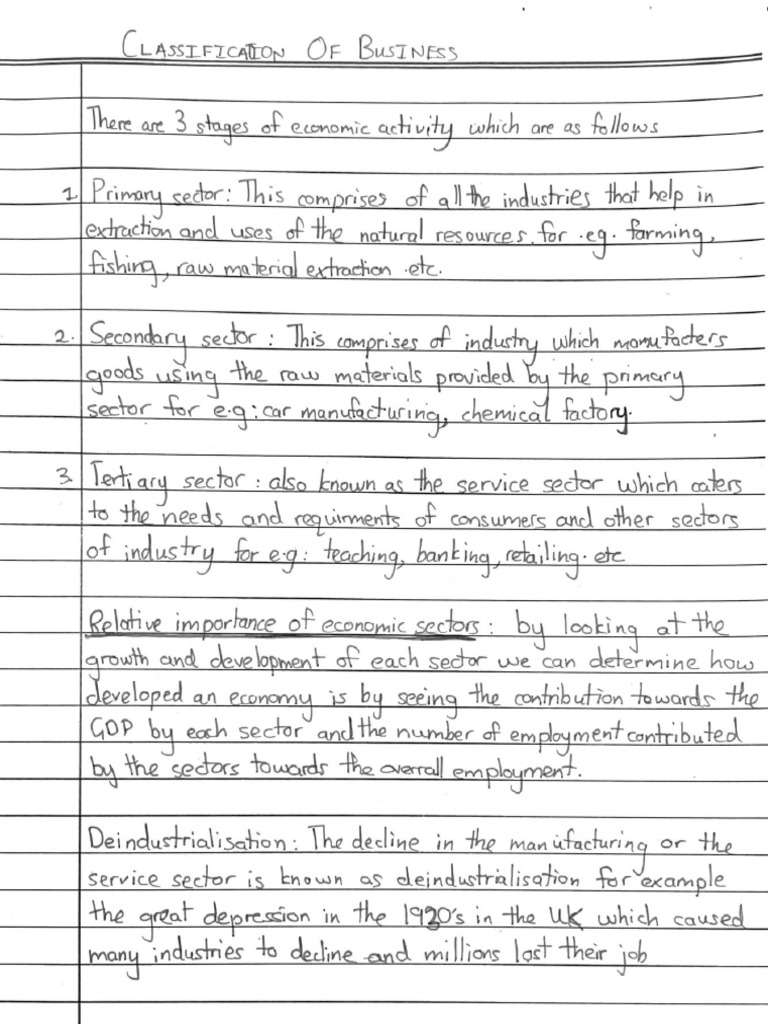 CLASSIFICATION OF BUSINESS
There are 3 stages of economic activity which are as follows
1. Primary sector: This comprises of all the industries that help in
extraction and uses of the natural resources for .eg. farming,
fishing, raw material extraction .etc.
2. Secondary sector : This comprises of industry which manufacters
goods using the raw materials provided by the primary
sector for e.g: car manufacturing, chemical factory.
3. Tertiary sector : also known as the service sector which caters
to the needs and requirments of consumers and other sectors
of industry for e.g: teaching, banking, retailing. etc
Relative importance of economic sectors: by looking at the
growth and development of each sector we can determine how
developed an economy is by seeing the contribution towards the
GDP by each sector and the number of employment contributed
by the sectors towards the overrall employment.
Deindustrialisation: The decline in the manufacturing or the
service sector is known as deindustrialisation for example
the great depression in the 1920's in the UK which caused
many industries to decline and millions lost their job